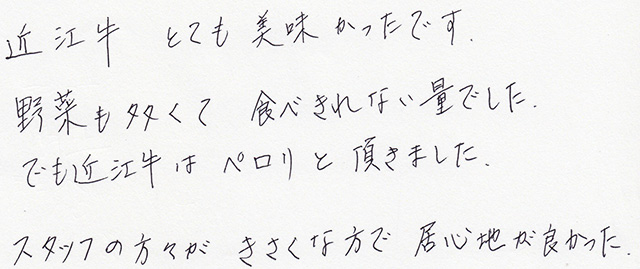 近江牛 とても美味かったです.
野菜も多くて 食べきれない量でした.
でも近江牛は ペロリと頂きました.
スタッフの方々が きさくな方で 居心地が良かった.